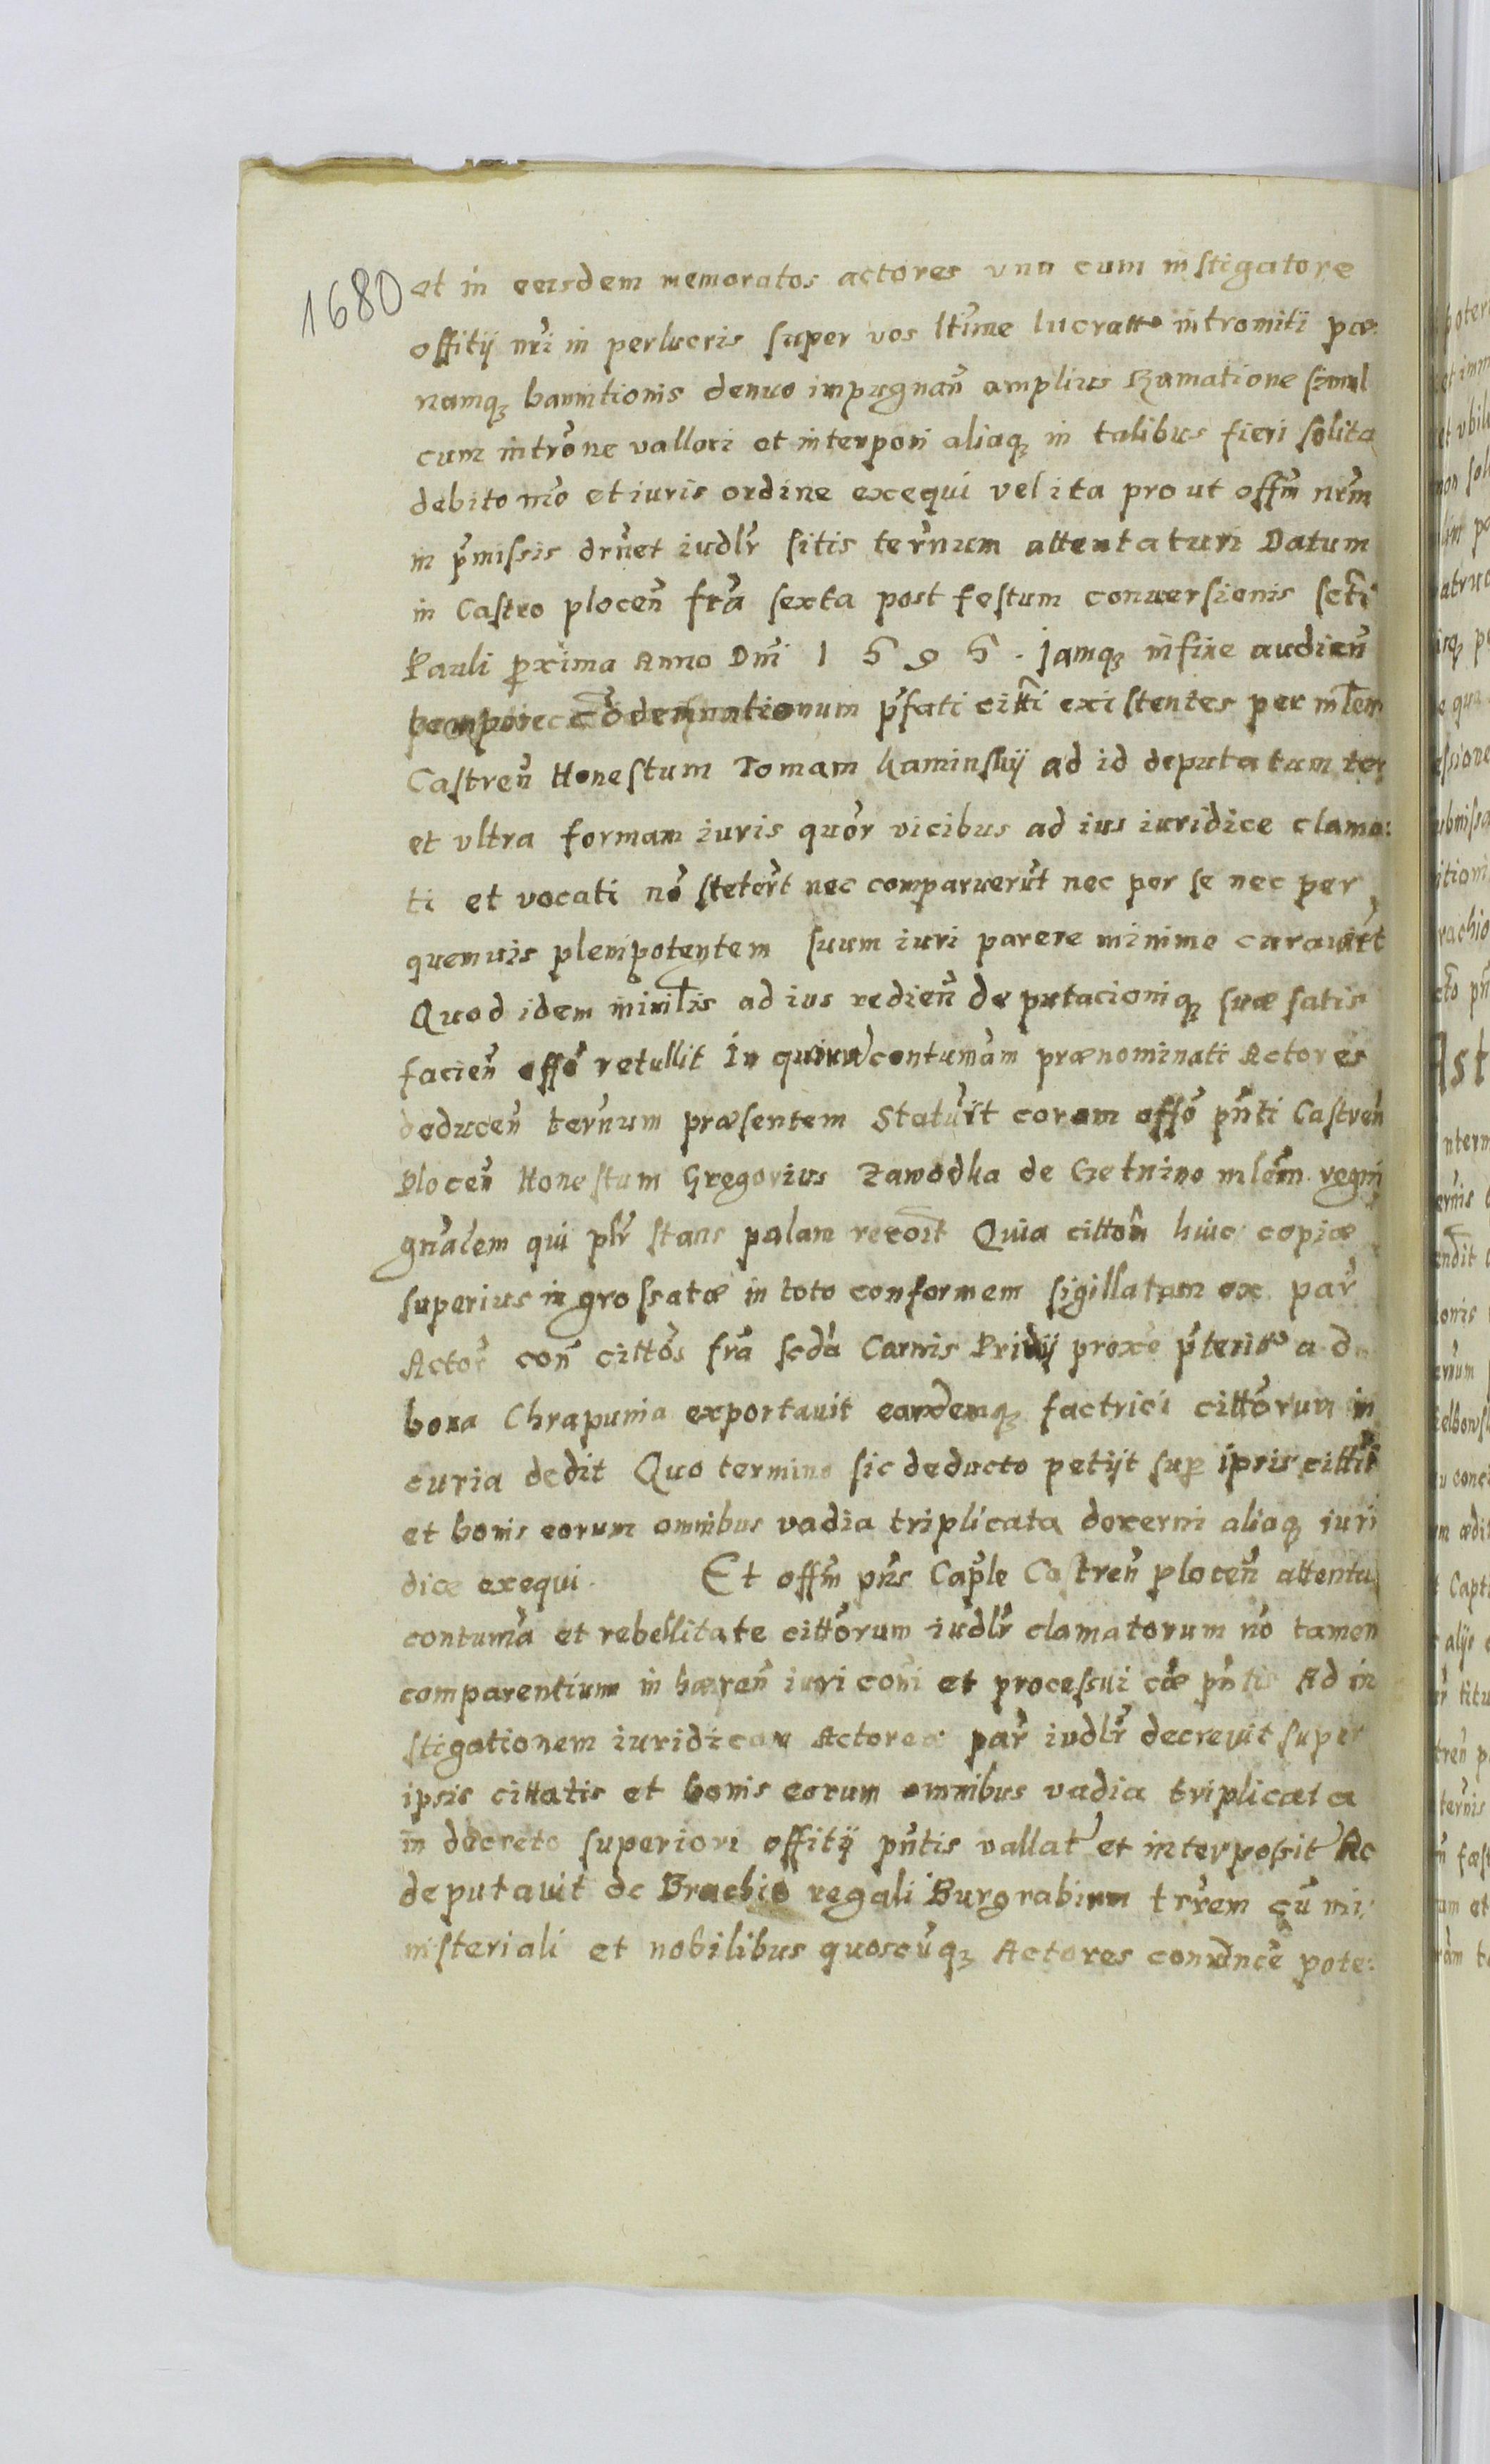 1680
et in eeisdem memoratos actores una cum instigatore
offitij nri in perlucris super vos ltime lucratto intromiti pœ
namq bannitionis denuo impugnan amplius simul
cum introne vallari et interponi aliaq in talibus fieri solita
debito mo et iuris ordine exequi vel ita prout offm nrm
in pmissis drnet iudlr sitis ternum attentaturi Datum
in Castro plocen fra sexta post festum conuersionis scti
Pauli proxima Anno Dni Jamq in fine audien
tempore codemnationum pfati citti existentes per mlem
Castren Honestum Tomam Kaminskij ad id deputatum ter
et vltra formam iuris quor vicibus ad ius iuridice clama:
ti et vocati no stetert nec comparuerut nec per se nec per
quemuis plenipotentem suum iuri parere minime curauert
Quod idem ad ius redien deputacioniq suæ satis
facien offo retullit In contumam prænominati Actores
deducen ternum præsentem Staturt coram offo pnti Castren
Plocen Honestum Gregorius Zawodka de mlem regni
gnalem qui plr stans palam recoit Quia citton huic copiæ
superius ingrossatæ in toto conformem sigillatam ex par
Actor con cittos fra scda Carnis Priuij proxe pterito ad
bona Chrapunia exportauit eandemq factrici cittorum in
curia dedit Quo termino sic deducto petijt sup ipsis cittis
et bonis eorum omnibus vadia triplicata decerni aliaq iuri
dice exequi. Et offm pns Caple Castren plocen attenta
contuma et rebellitate cittorum iudlr clamatorum no tamen
comparentium in hæren iuri coni et processui cæ pntis Ad in
stigationem iuridicam Actoreæ par iudlr decreuit super
ipsis cittatis et bonis eorum omnibus vadia triplicata
in decreto superiori offitij pntis vallat et interposit Ac
deputauit de Brachio regali Burgrabium trrem cu mi:
nisteriali et nobilibus quoscuq Actores pote: